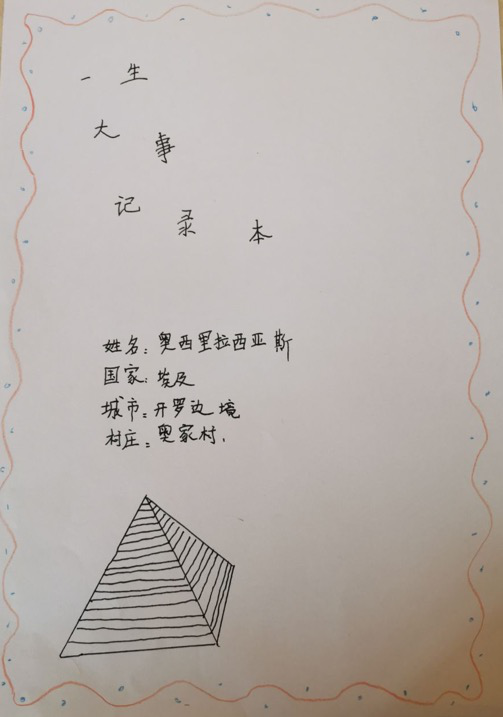 一生
大事
记录本
姓名：奥西里拉西亚斯
国家：埃及
城市：开罗边境
村庄：奥家村.